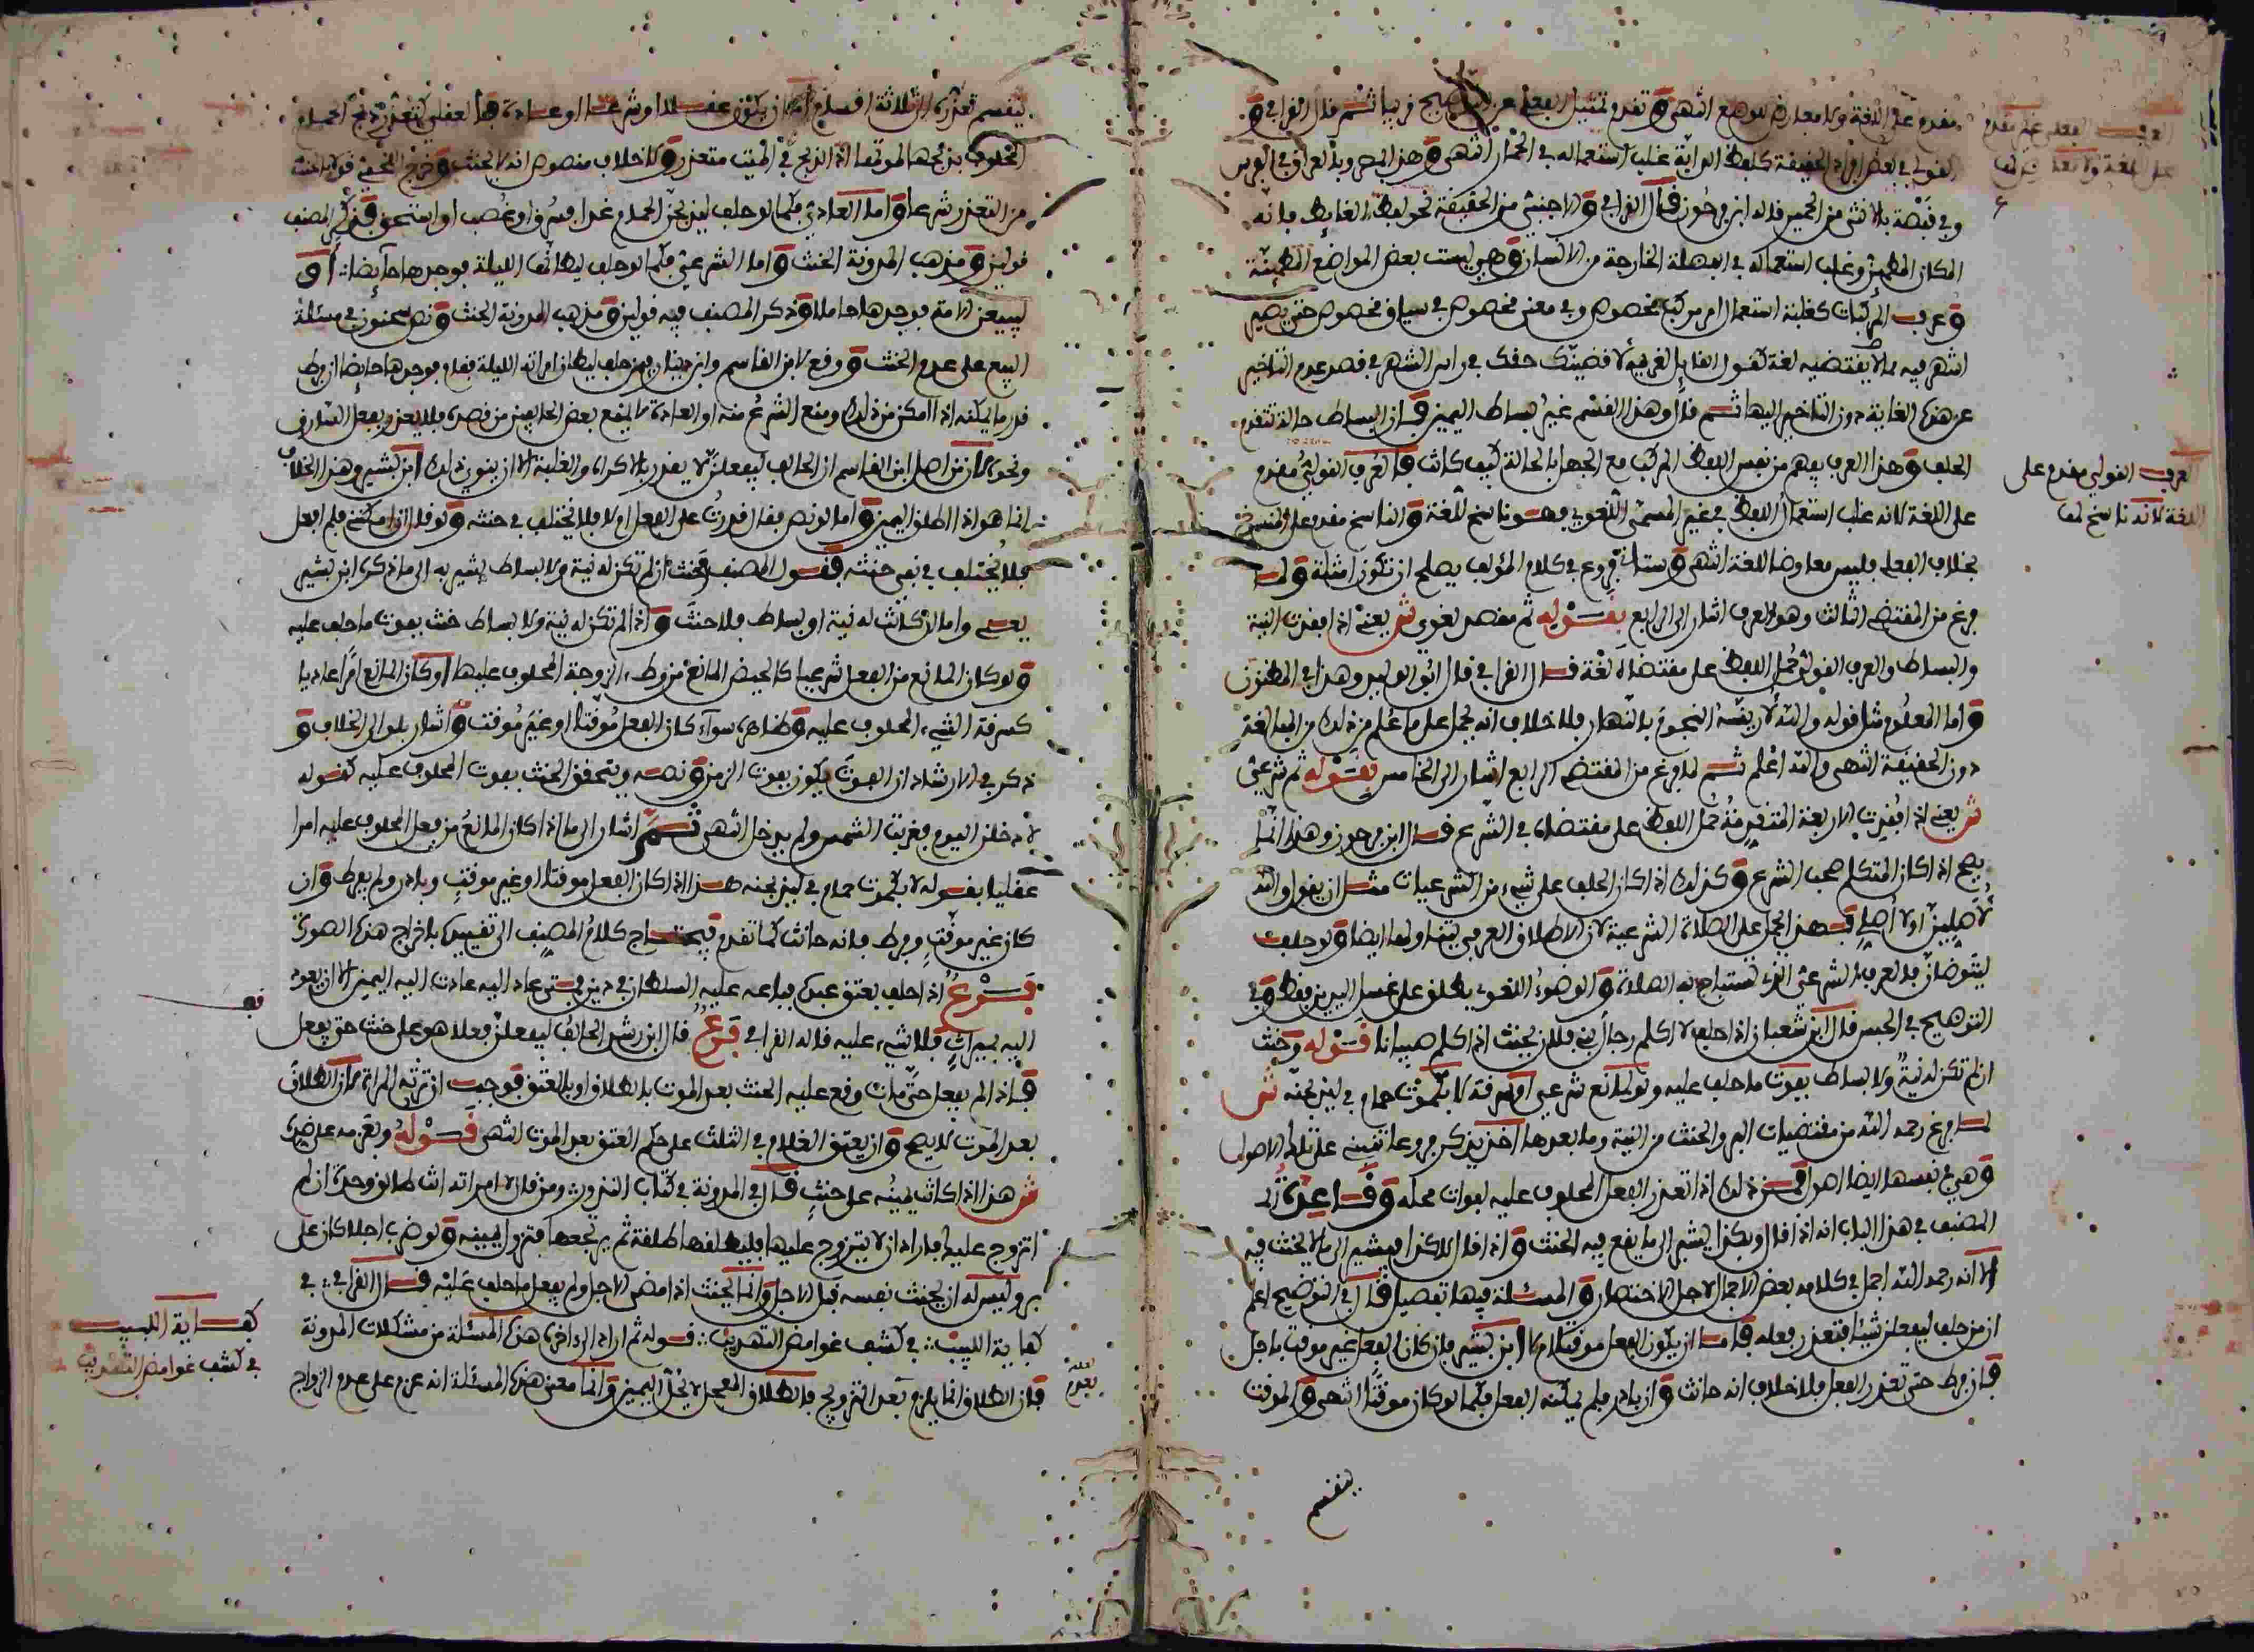 مقدم على اللغة ولا معارض للوضع انتهى وتقدم تمثيل الفعلي عن قريبا ثم قال القرافي و
القولي في بعض افراد الحقيقة كلفظ الدابة غلب استعماله في الحمار انتهى وهذا بمصر وبالعراق في الفرس
وفي قفصة بالانثى من الحمير قاله ابن فرحون قال القرافي والاجنبي من الحقيقة نحو لفظ الغايط فانه
المكان المطمئن وغلب استعماله في الفضلة الخارجة من الانسان وهي ليست بعض المواضع المطمئنة
وعرف المركبات كغلبة استعمال مركب مخصوص وفي معنى مخصوص في سياق مخصوص حتى يصير
اشهر فيه مما لا يقتضيه لغة كقول القايل لغريمه لاقضينك حقك في راس الشهر في قصد عدم التاخير
عن هذه الغاية دون التاخير اليها ثم قال وهذا القسم غير بساط اليمين فان البساط حالة تتقدم
الحلف وهذا العرف يفهم من نفس اللفظ المركب مع الجهل بالحالة كيف كانت فالعرف القولي مقدم
على اللغة لانه غلب استعمال اللفظ في غير المسمى اللغوي فهو ناسخ للغة والناسخ مقدم على المنسوخ
بخلاف الفعلي فليس معارضا للغة انتهى وستاتي فروع في كلام المؤلف يصلح ان تكون امثلة ولما
فرغ من المقتضي الثالث وهو العرف اشار الى الرابع بقوله ثم مقصد لغوي ش يعني اذا فقدت النية
والبساط والعرف القولي حمل اللفظ على مقتضاه لغة قال القرافي قال ابو الوليد وهذا في المظنون
واما المعلوم مثل قوله والله لارينه النجوم بالنهار فلا خلاف انه يحمل على ما علم من ذلك من المبالغة
دون الحقيقة انتهى والله اعلم ثم لما فرغ من المقتضي الرابع اشار الى الخامس بقوله ثم شرعي
ش يعني اذا فقدت الاربعة المتقدمة حمل اللفظ على مقتضاه في الشرع قال ابن فرحون وهذا انما
يصح اذا كان المتكلم صاحب الشرع وكذلك اذا كان الحلف على شيء من الشرعيات مثل ان يقول والله
لاصلين او لا اصلي فهذا يحمل على الصلاة الشرعية لان الاطلاق العرفي يتناولها ايضا ولو حلف
ليتوضان فالعرف الشرعي الذي تستباح به الصلاة والوضوء اللغوي يطلق على غسل اليدين فقط وفي
التوضيح في الحبس قال ابن شعبان اذا حلف لا اكلم رجالا بني فلان يحنث اذا كلم صبيانا قوله وحنث
ان لم تكن له نية ولا بساط بفوت ما حلف عليه ولو لمانع شرعي او سرقة لا بكموت حمام في ليذبحنه ش
لما فرغ رحمه الله من مقتضيات البر والحنث من النية وما بعدها اخذ يذكر فروعا تنبني على تلك الاصول
وهي في نفسها ايضا اصول فمن ذلك اذا تعذر الفعل المحلوف عليه لفوات محله وقاعدة
المصنف في هذا الباب انه اذا قال وبكذا يشير الى ما يقع فيه الحنث واذا قال لا كذا فيشير الى ما لا يحنث فيه
الا انه رحمه الله اجمل في كلامه بعض الاجمال لاجل الاختصار والمسئلة فيها تفصيل قال في التوضيح اعلم
ان من حلف ليفعلن شيئا فتعذر فعله فاما ان يكون الفعل موقتا ام لا ابن بشير فان كان الفعل غير موقت باجل
فان فرط حتى تعذر الفعل فلا خلاف انه حانث وان بادر فلم يمكنه الفعل فكما لو كان موقتا انتهى والموقت
ينقسم
العرف الفعلي غير مقدم
على اللغة ولا معارض لها
العرف القولي مقدم على
اللغة لانه ناسخ لها
ينقسم تعذره الى ثلاثة اقسام اما ان يكون عقلا او شرعا او عادة فالعقلي كتعذر ذبح الحمام
المحلوف بذبحها لموتها اذ الذبح في الميت متعذر ولا خلاف منصوص انه لا يحنث وخرج اللخمي قولا بالحنث
من التعذر شرعا واما العادي فكما لو حلف ليذبحن الحمام غدا فسرق او غصب او استحق فذكر المصنف
قولين ومذهب المدونة الحنث واما الشرعي فكما لو حلف ليطانها الليلة فوجدها حايضا او
ليبيعن الامة فوجدها حاملا وذكر المصنف فيه قولين ومذهب المدونة الحنث ونص سحنون في مسئلة
البيع على عدم الحنث ووقع لابن القاسم وابن دينار فيمن حلف ليطان امراته الليلة فقام فوجدها حايضا ان فرط
قدر ما يمكنه اذا امكن من ذلك ومنع الشرع منه او العادة ما لم يقع بعض الحايضين من قصده فلا يعذر وبفعل السارق
ونحوه كان من اصل ابن القاسم ان الحالف ليفعلن لا يعذر بالاكراه والغلبة الا ان ينوي ذلك ابن بشير وهذا الخلاف
انما هو اذا اطلق اليمين واما لو نص فقال قدرت على الفعل او لا فلا يختلف في حنثه ولو قال ان امكنني فلم افعل
فلا يختلف في نفي حنثه فقول المصنف وحنث ان لم تكن له نية ولا بساط يشير به الى ما ذكره ابن بشير
يعني واما لو كانت له نية او بساط فلا حنث واذا لم تكن له نية ولا بساط حنث بفوت ما حلف عليه
ولو كان المانع من الفعل شرعيا كالحيض المانع من وطء الزوجة المحلوف عليها او كان المانع امرا عاديا
كسرقة الشيء المحلوف عليه وظاهره سواء كان الفعل موقتا او غير موقت واشار بلو الى الخلاف و
ذكر في الارشاد ان الفوت يكون بفوت الزمن ونصه ويتحقق الحنث بفوت المحلوف عليه كقوله
لادخلن اليوم فغربت الشمس ولم يدخل انتهى ثم اشار الى ما اذا كان المانع من فعل المحلوف عليه امرا
عقليا بقوله لا بكموت حمام في ليذبحنه هذا اذا كان الفعل موقتا او غير موقت وبادر ولم يفرط وان
كان غير موقت وفرط فانه حانث كما تقدم فيحتاج كلام المصنف الى تقييده باخراج هذه الصورة
فرع اذا حلف بعتق عبده فباعه عليه السلطان في دين ثم عاد اليه عادت اليه اليمين الا ان يعود
اليه بميراث فلا شيء عليه قاله القرافي فرع قال ابن رشد الحالف ليفعلن فعلا هو على حنث حتى يفعل
فاذا لم يفعل حتى مات وقع عليه الحنث بعد الموت بالطلاق او بالعتق فوجب ان ترثه المراة لان الطلاق
بعد الموت لا يصح وان يعتق الغلام في الثلث على حكم العتق بعد الموت انتهى قوله وبعزمه على ضده
ش هذا اذا كانت يمينه على حنث قال في المدونة في كتاب النذور ومن قال لامراته انت طالق واحدة ان لم
اتزوج عليك فاراد ان لا يتزوج عليها فليطلقها طلقة ثم يرتجعها فتزول يمينه ولو ضرب اجلا كان على
بر وليس له ان يحنث نفسه قبل الاجل وانما يحنث اذا مضى الاجل ولم يفعل ما حلف عليه قال القرافي في
كفاية اللبيب في كشف غوامض التهذيب قوله ثم اراد الى اخره هذه المسئلة من مشكلات المدونة
فان الطلاق انما يلزم بعد التزويج فالطلاق المعجل لا يحل اليمين وانما معنى هذه المسئلة انه عزم على عدم الزواج
كفاية اللبيب
في كشف غوامض التهذيب